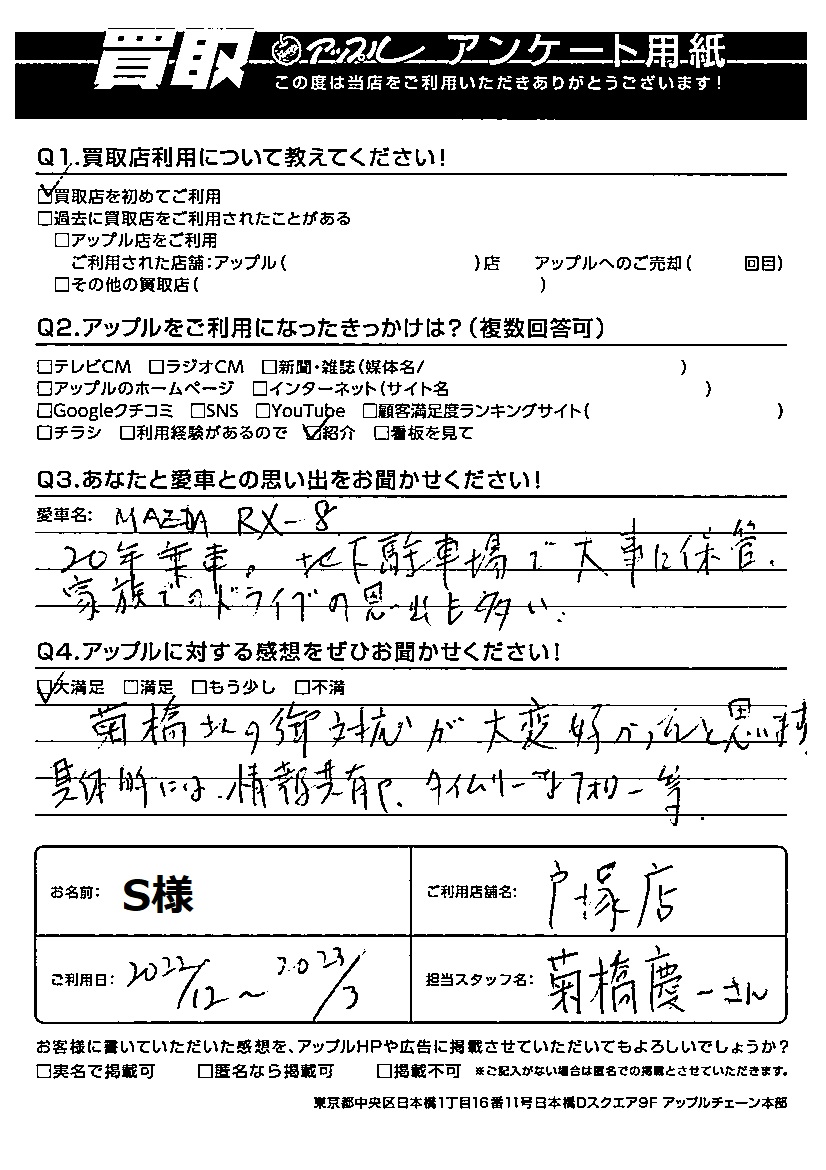 買取 アップル アンケート用紙
この度は当店をご利用いただきありがとうございます!
Q1.買取店利用について教えてください!
☑買取店を初めてご利用
□過去に買取店をご利用されたことがある
□アップル店をご利用
ご利用された店舗:アップル( )店 アップルへのご売却( 回目)
□その他の買取店( )
Q2.アップルをご利用になったきっかけは?(複数回答可)
□テレビCM □ラジオCM □新聞・雑誌(媒体名/ )
□アップルのホームページ □インターネット(サイト名 )
□Googleクチコミ □SNS □YouTube □顧客満足度ランキングサイト( )
□チラシ □利用経験があるので ☑紹介 □看板を見て
Q3.あなたと愛車との思い出をお聞かせください!
愛車名: MAZDA RX-8
20年乗車。地下駐車場で大事に保管.
家族でのドライブの思い出も多い.
Q4.アップルに対する感想をぜひお聞かせください!
☑大満足 □満足 □もう少し □不満
菊橋さんの御対応が大変好かったと思います
具体的には、情報共有や、タイムリーなフォロー等.
お名前: S様
ご利用店舗名: 戸塚店
ご利用日: 2022/12~2023/3
担当スタッフ名: 菊橋慶一さん
お客様に書いていただいた感想を、アップルHPや広告に掲載させていただいてもよろしいでしょうか?
□実名で掲載可 □匿名なら掲載可 □掲載不可 ※ご記入がない場合は匿名での掲載とさせていただきます。
東京都中央区日本橋1丁目16番11号日本橋Dスクエア9F アップルチェーン本部